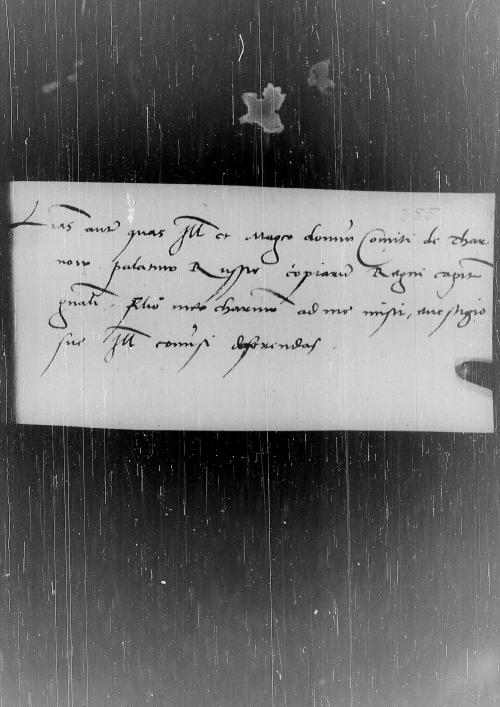 355
Lras autē quas Ill et Magco domō Comiti de Thar
now palatino Russie copiarū Regni capit
gnali filio meo charmo ad me misit, e vestigio
sue Ill comisi deferendas.